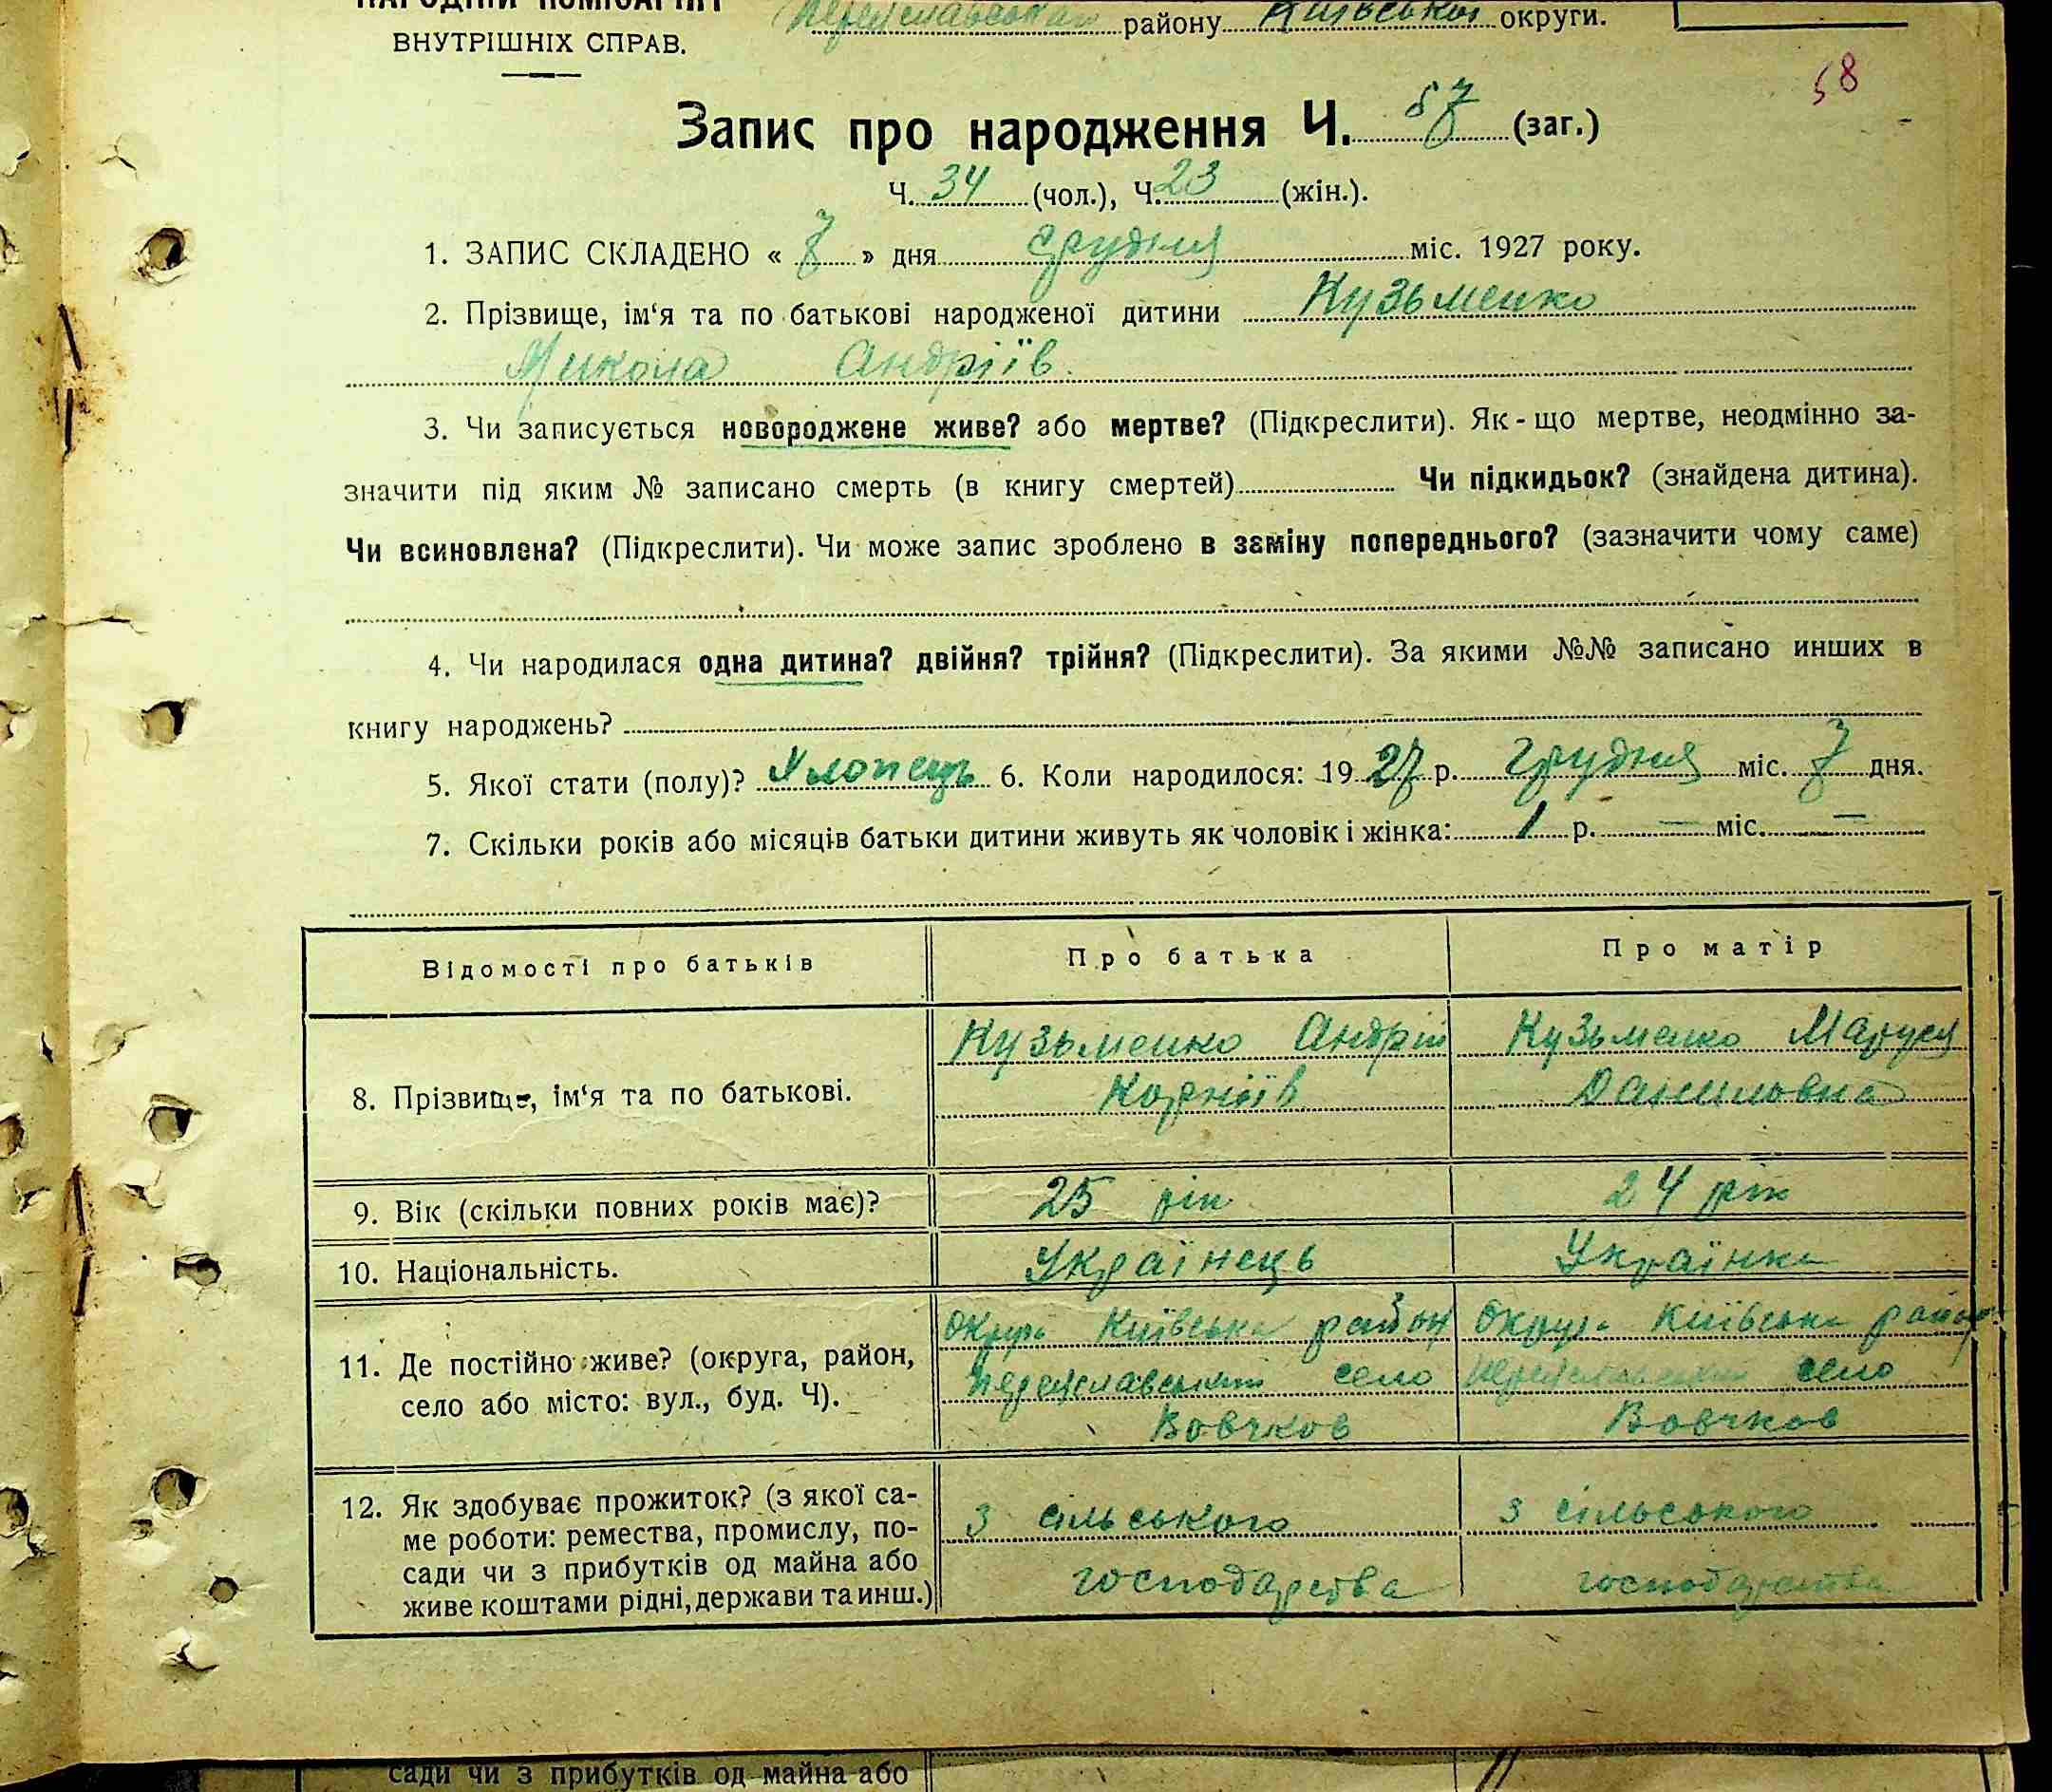 НАРОДНІЙ КОМІСАРІЯТ
ВНУТРІШНІХ СПРАВ.
району Київської округи.
58
Запис про народження Ч. 57 (заг.)
Ч. 34 (чол.), Ч. 23 (жін.).
1. ЗАПИС СКЛАДЕНО « 7 » дня грудня міс. 1927 року.
2. Прізвище, ім‘я та по батькові народженої дитини Кузьменко
Микола Андріїв.
3. Чи записується новороджене живе? або мертве? (Підкреслити). Як-що мертве, неодмінно за-
значити під яким № записано смерть (в книгу смертей) Чи підкидьок? (знайдена дитина).
Чи всиновлена? (Підкреслити). Чи може запис зроблено в заміну попереднього? (зазначити чому саме)
4. Чи народилася одна дитина? двійня? трійня? (Підкреслити). За якими №№ записано инших в
книгу народжень?
5. Якої стати (полу)? Хлопець 6. Коли народилося: 1927 р. Грудня міс. 7 дня.
7. Скільки років або місяців батьки дитини живуть як чоловік і жінка: 1 р. — міс. —
Відомості про батьків Про батька Про матір
8. Прізвище, ім‘я та по батькові. Кузьменко Андрій Кузьменко Маруся
Корніїв Даниловна
9. Вік (скільки повних років має)? 25 рік 24 рік
10. Національність. Українець Українка
Округа Київська район Округа Київська район
11. Де постійно живе? (округа, район, Переяславський село Переяславський село
село або місто: вул., буд. Ч). Вовчков Вовчков
12. Як здобуває прожиток? (з якої са- з сільського з сільського
ме роботи: ремества, промислу, по-
сади чи з прибутків од майна або господарства господарства
живе коштами рідні, держави та инш.)
сади чи з прибутків од майна або